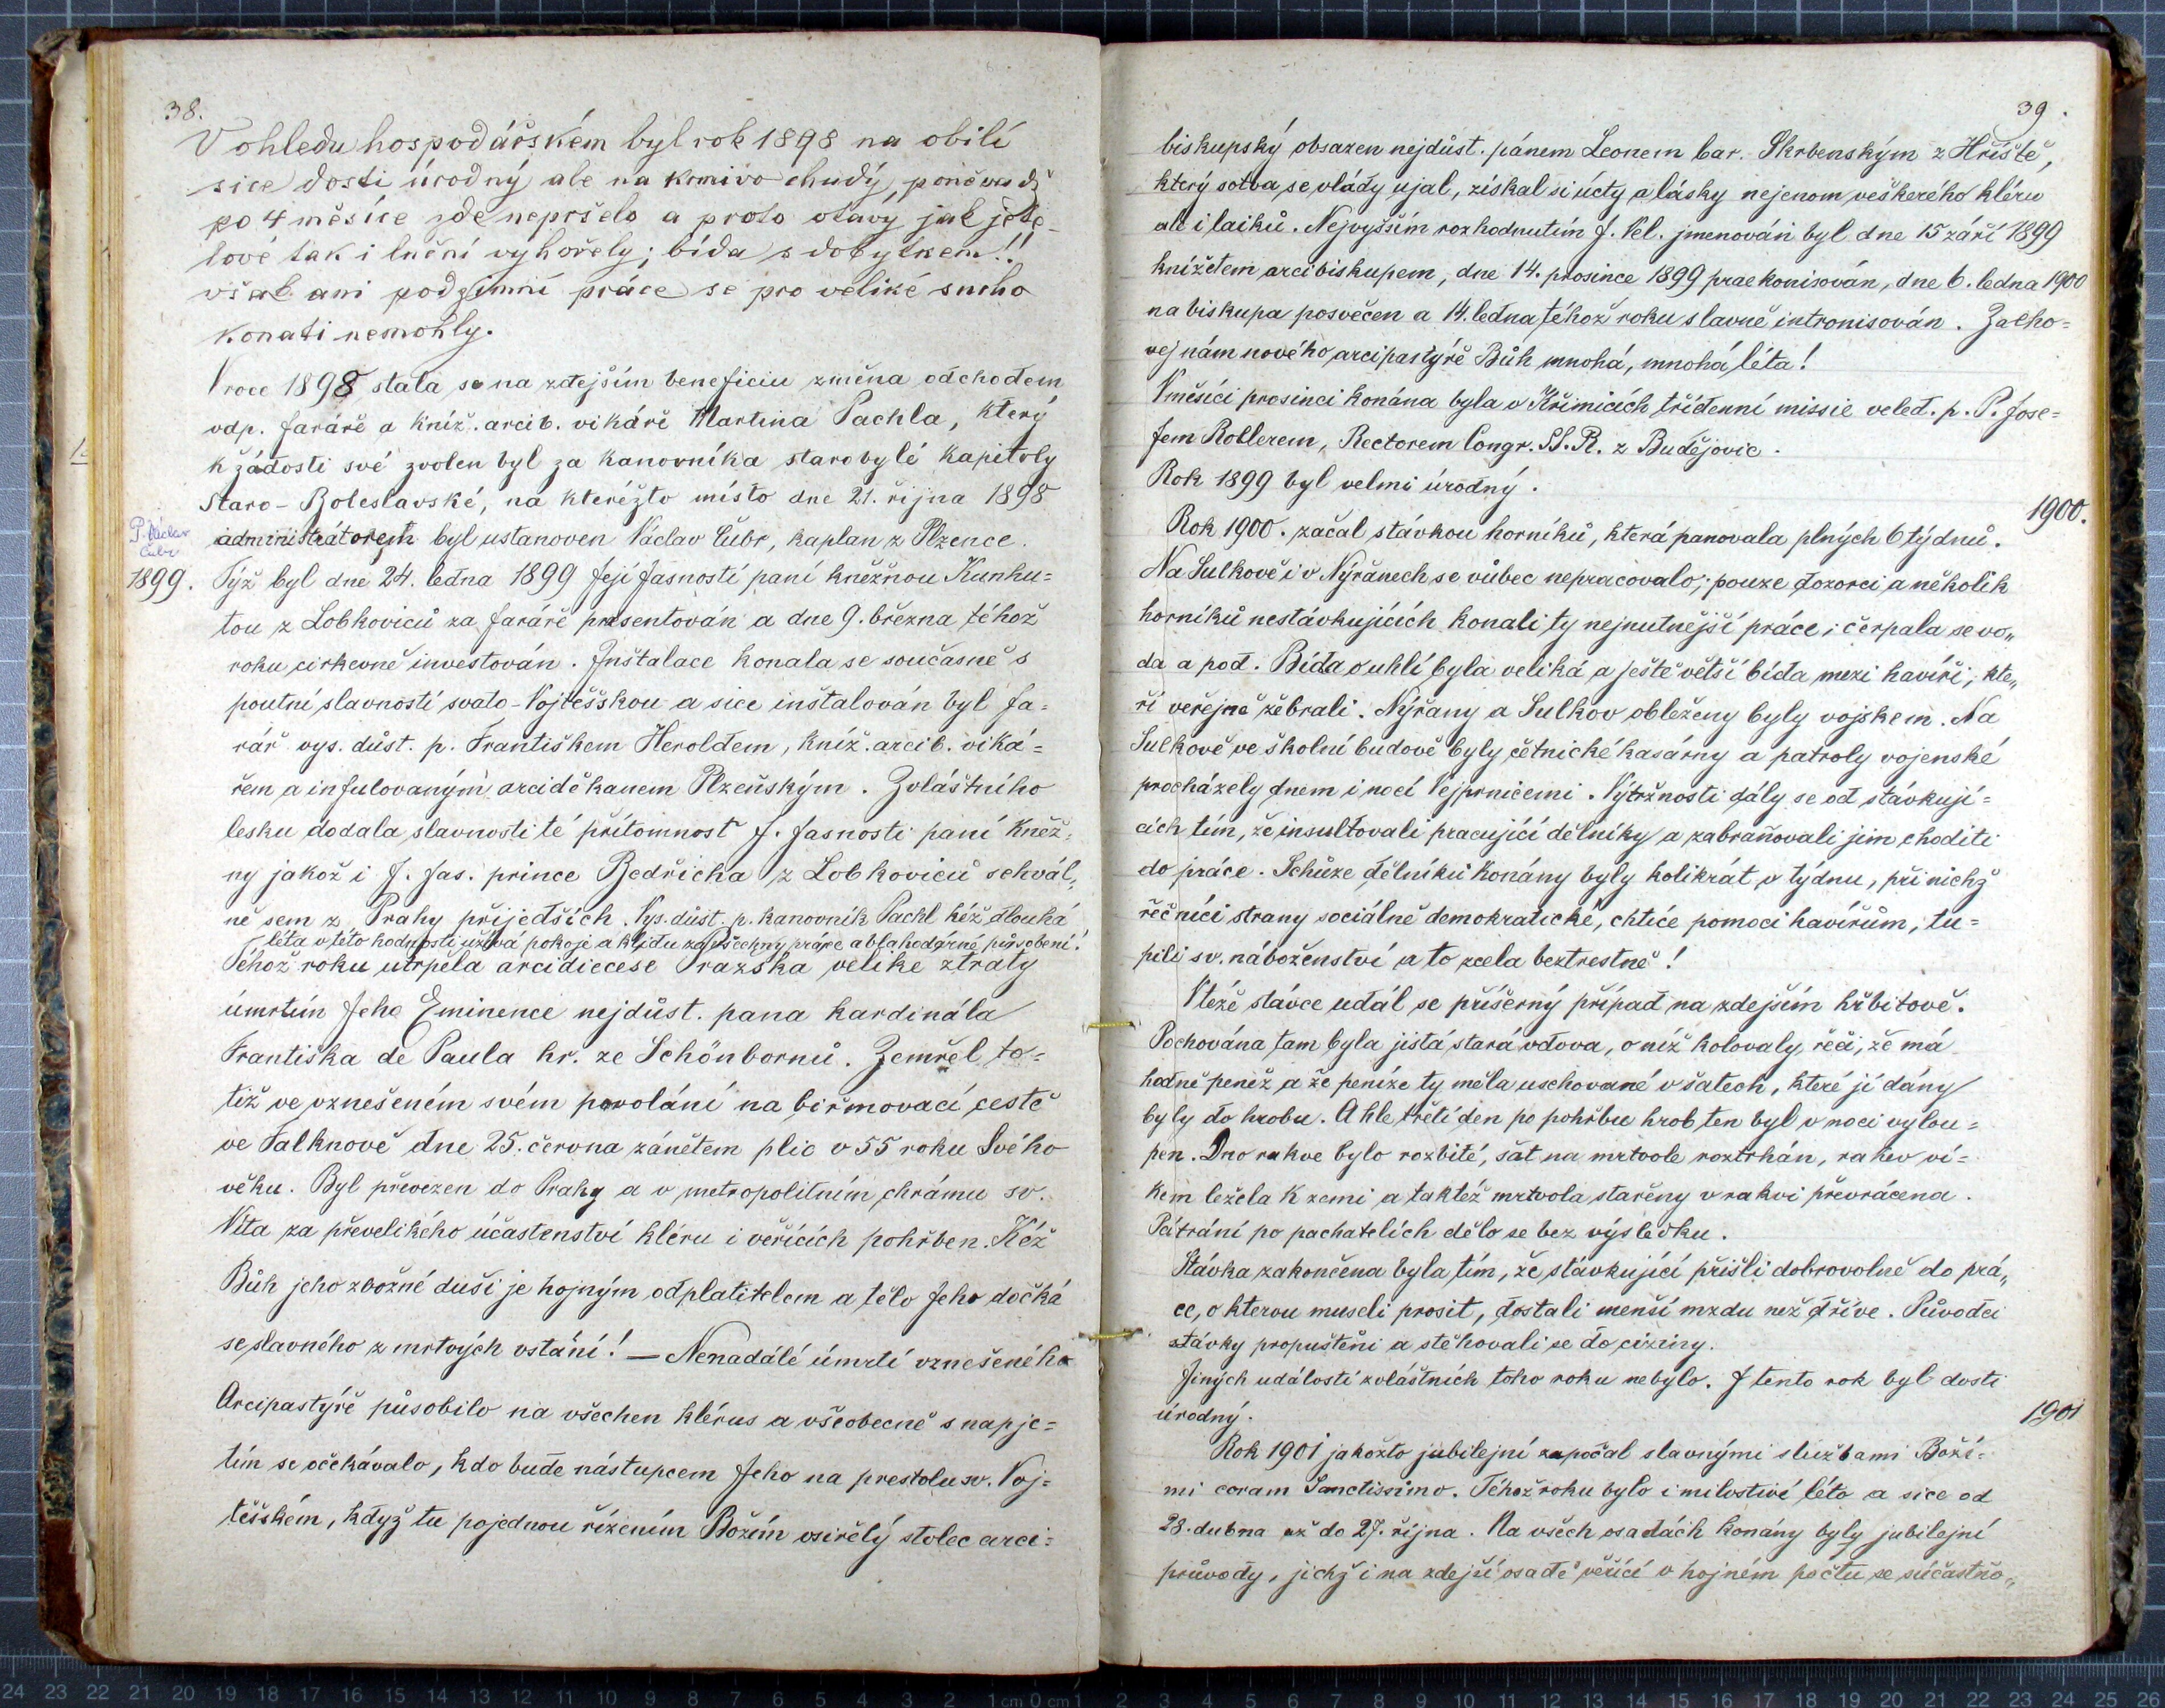 38.
V ohledu hospodářském byl rok 1898 na obilí
sice dosti úrodný ale na krmivo chudý, poněvadž
po 4 měsíce zde nepršelo a proto otavy jak jete-
lové tak i luční vyhořely; bída s dobytkem!!
však ani podzimní práce se pro veliké sucho
konati nemohly.
V roce 1898 stala se na zdejším beneficiu změna odchodem
vdp. faráře a kníž. arcib. vikáře Martina Pachla, který
k žádosti své zvolen byl za kanovníka starobylé kapitoly
Staro-Boleslavské, na kteréžto místo dne 21. října 1898
P. Václav
Čubr
administrátorem byl ustanoven Václav Čubr, kaplan z Plzence.
1899. Týž byl dne 24. ledna 1899 Její Jasností paní kněžnou Kunhu=
tou z Lobkoviců za faráře presentován a dne 9. března téhož
roku cirkevně investován. Inštalace konala se současně s
poutní slavností svato-Vojtěšskou a sice inštalován byl fa=
rář vys. důst. p. Františkem Heroldem, kníž. arcib. viká=
řem a infulovaným arciděkanem Plzeňským. Zvláštního
lesku dodala slavnosti té přítomnost J. Jasnosti paní Kněž=
ny jakož i J. Jas. prince Bedřicha z Lobkoviců schvál„
ně sem z Prahy přijedších. Vys. důst. p. kanovník Pachl kéž dlouhá
léta v této hodnosti užívá pokoje a klidu za všechny práce a blahodárné působení!
Téhož roku utrpěla arcidiecese Pražská veliké ztráty
úmrtím Jeho Eminence nejdůst. pana kardinála
Františka de Paula hr. ze Schönbornů. Zemřel to=
tiž ve vznešeném svém povolání na biřmovací cestě
ve Falknově dne 25. června zánětem plic v 55 roku Svého
věku. Byl převezen do Prahy a v metropolitním chrámu sv.
Víta za převelikého účastenství kléru i věřících pohřben. Kéž
Bůh jeho zbožné duši je hojným odplatitelem a tělo Jeho dočká
se slavného z mrtvých vstání! — Nenadálé úmrtí vznešeného
Arcipastýře působilo na všechen klérus a všeobecně s napje=
tím se očekávalo, kdo bude nástupcem Jeho na prestolu sv. Voj=
těšském, když tu pojednou řízením Božím osiřelý stolec arci=
39.
biskupský obsazen nejdůst. pánem Leonem bar. Skrbenským z Hříště,
který sotva se vlády ujal, získal si úcty a lásky nejenom veškerého kléru
ale i laiků. Nejvyšším rozhodnutím J. Vel. jmenován byl dne 15 září 1899
knížetem arcibiskupem, dne 14. prosince 1899 praekonisován, dne 6. ledna 1900
na biskupa posvěčen a 14. ledna téhož roku slavně intronisován. Zacho=
vej nám nového arcipastýře Bůh mnohá, mnohá léta!
V měsíci prosinci konána byla v Křimicích třídenní missie veled. p. P. Jose=
fem Roblerem, Rectorem Congr. SS. R. z Budějovic.
Rok 1899 byl velmi úrodný.
1900.
Rok 1900. začal stávkou horníků, která panovala plných 6 týdnů.
Na Sulkově i v Nýřanech se vůbec nepracovalo; pouze dozorci a několik
horníků nestávkujících konali ty nejnutnější práce; čerpala se vo„
da a pod. Bída o uhlí byla veliká a ještě větší bída mezi havíři, kte„
ří veřejně žebrali. Nýřany a Sulkov obleženy byly vojskem. Na
Sulkově ve školní budově byly četnické kasárny a patroly vojenské
procházely dnem i nocí Vejprnicemi. Výtržnosti dály se od stávkují=
cích tím, že insultovali pracující dělníky a zabraňovali jim choditi
do práce. Schůze dělníků konány byly kolikrát v týdnu, při nichž
řečníci strany sociálně demokratické, chtíce pomoci havířům, tu=
pili sv. náboženství a to zcela beztrestně!
V téže stávce udál se příšerný případ na zdejším hřbitově.
Pochována tam byla jistá stará vdova, o níž kolovaly řeči, že má
hodně peněz a že peníze ty měla uschované v šatech, které jí dány
byly do hrobu. A hle třetí den po pohřbu hrob ten byl v noci vylou=
pen. Dno rakve bylo rozbité, šat na mrtvole roztrhán, rakev ví=
kem ležela k zemi a taktéž mrtvola stařeny v rakvi převrácena.
Pátrání po pachatelích dělo se bez výsledku.
Stávka zakončena byla tím, že stávkující přišli dobrovolně do prá„
ce, o kterou museli prosit, dostali menší mzdu než dříve. Původci
stávky propuštěni a stěhovali se do ciziny.
Jiných událostí zvláštních toho roku nebylo. I tento rok byl dosti
úrodný.
1901
Rok 1901 jakožto jubilejní započal slavnými službami Boží=
mi coram Sanctissimo. Téhož roku bylo i milostivé léto a sice od
28. dubna až do 27. října. Na všech osadách konány byly jubilejní
průvody, jichž i na zdejší osadě věřící v hojném počtu se súčastňo„